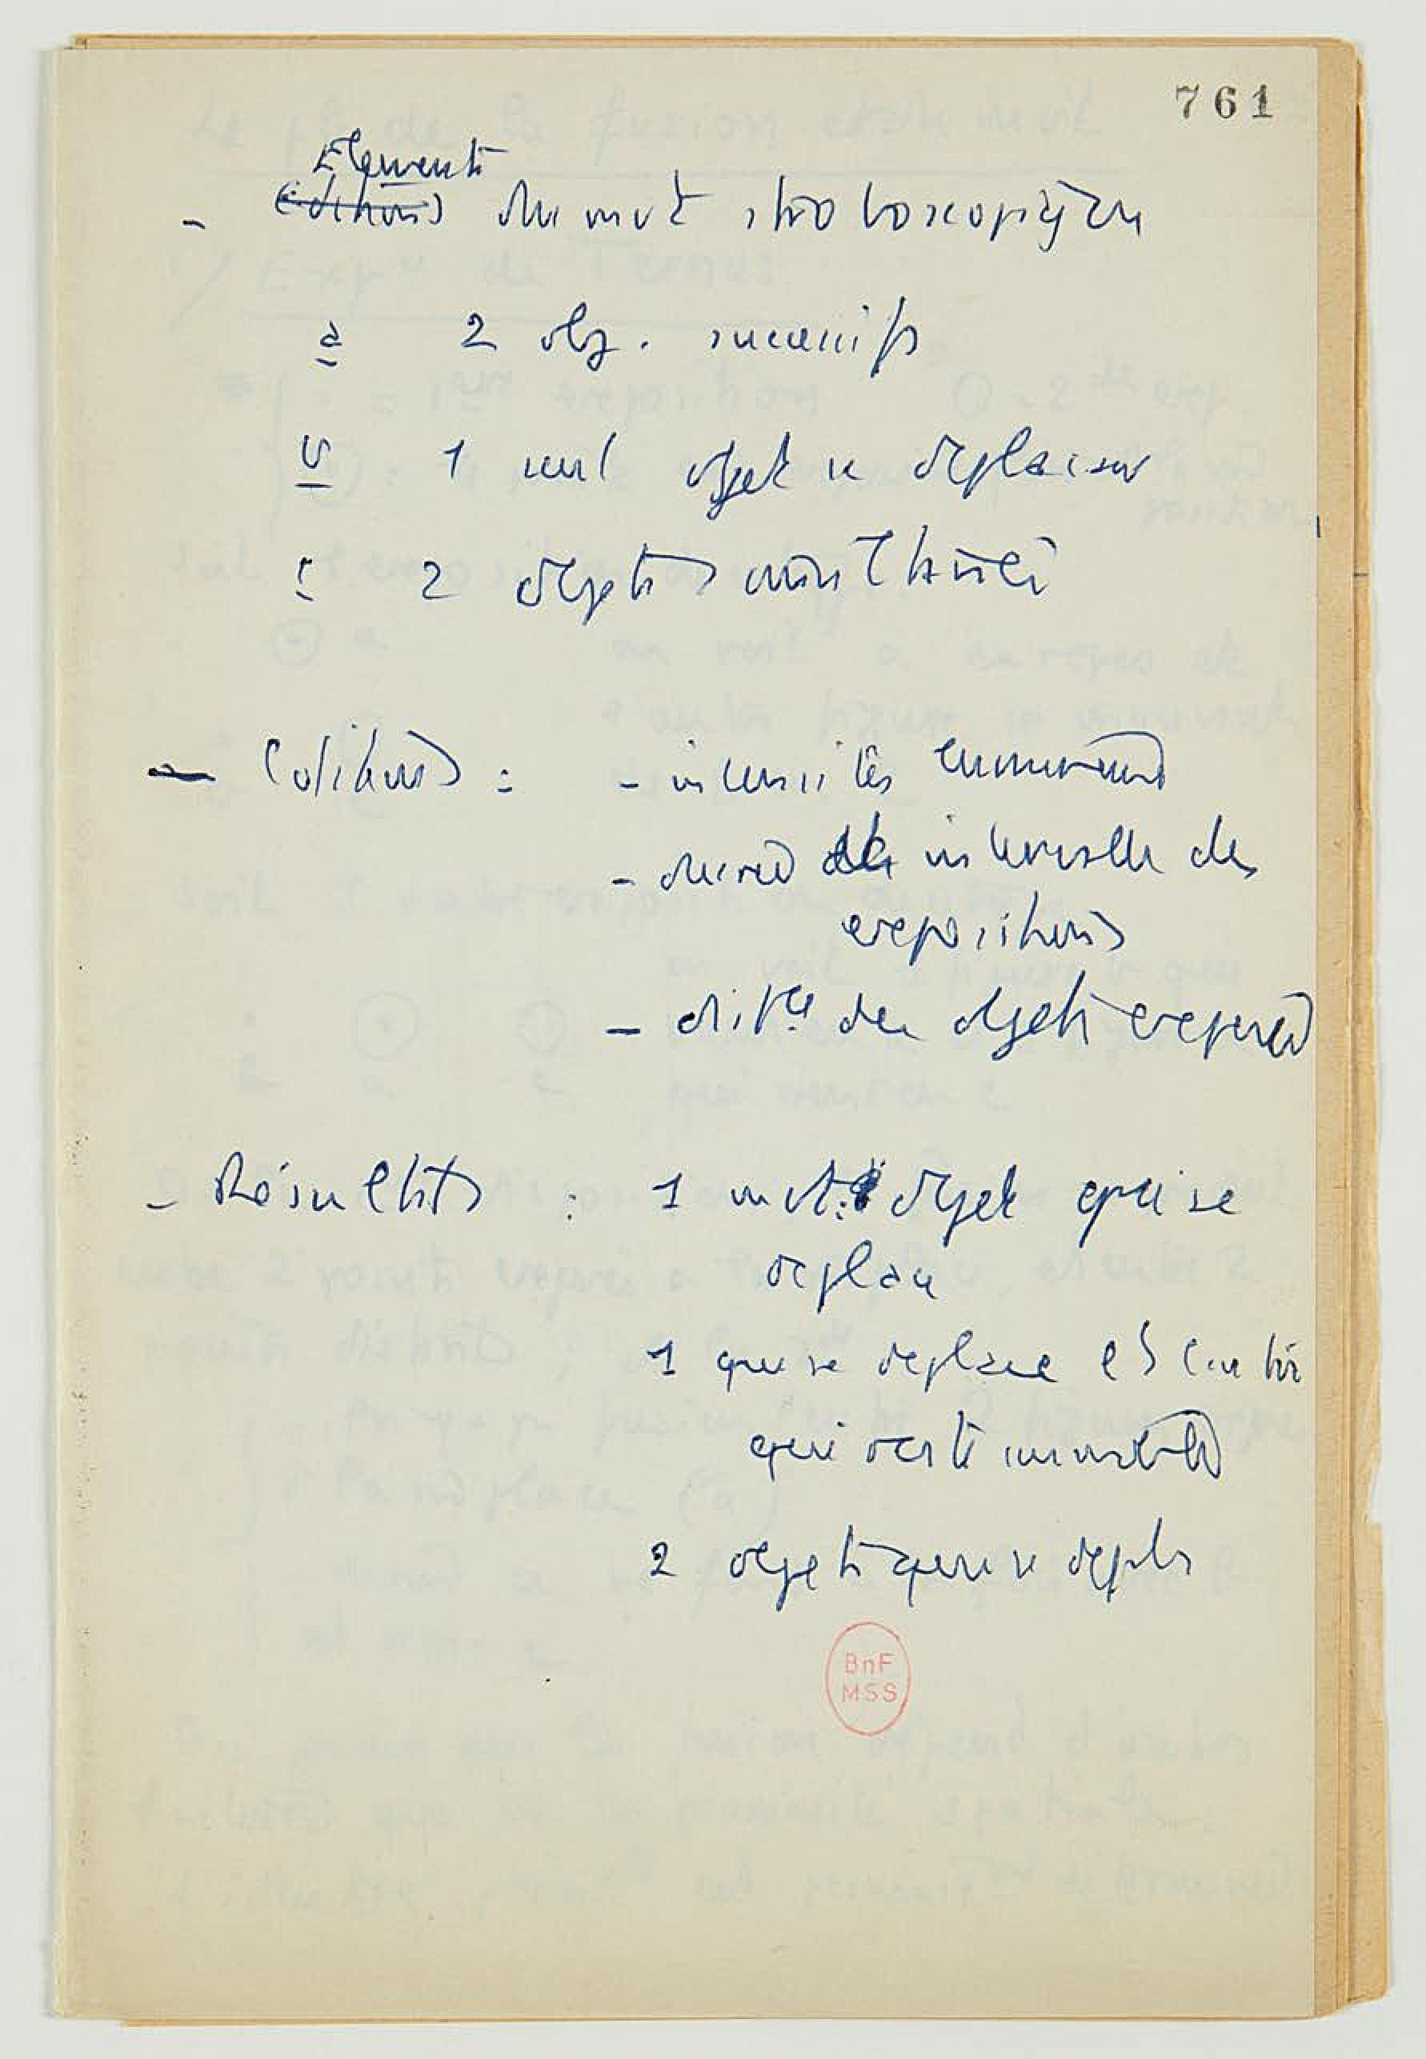 761
Elements
- Conditions du mvt stroboscopique
a 2 obj. successifs
b 1 seul objet se déplaçant
c 2 objets simultanés
- Conditions : - intensités lumineuses
- durée de intervalle des
expositions
- distce des objets exposés
- Résultats : 1 mvt : objet qui se
déplace
1 qui se déplace et l'autre
qui reste immobile
2 objets qui se dépl
BnF
MSS